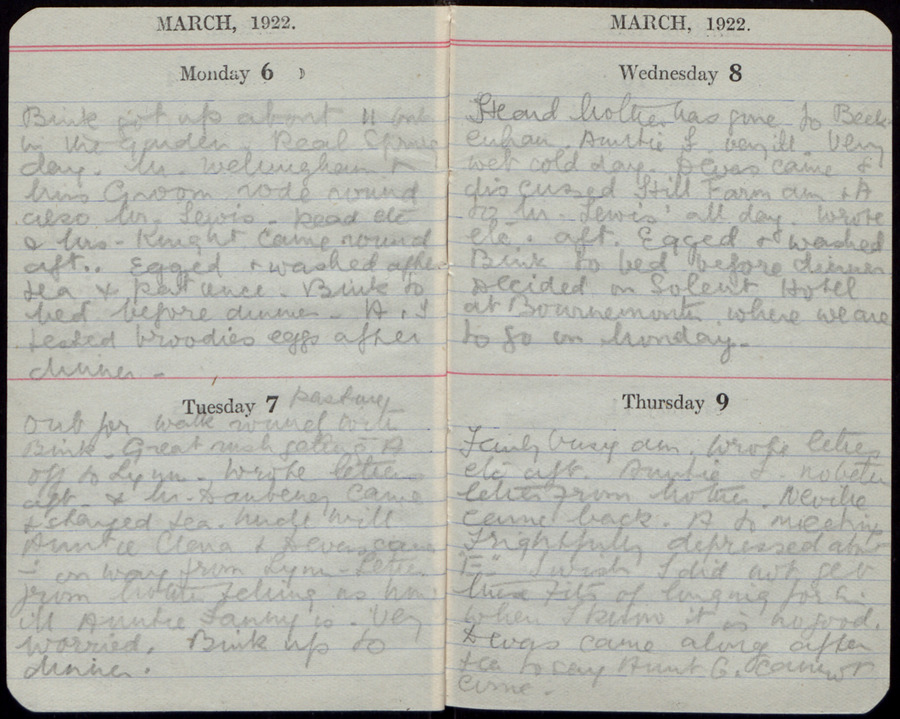 MARCH, 1922.
Monday 6
Bink got up about 11 and
in the garden. Real Spring
day. Mr. Wellingham &
his Groom rode round
also Mr. Lewis. Read etc
& Mrs. Knight came round
aft.. Egged & washed after
tea & patience. Bink to
bed before dinner - A & I
tested broodies eggs after
dinner -
Tuesday 7
Out for walk round with
Bink. Great rush getting A
off to Lynn. Wrote letters
aft. & Mr. Daubeney came
& changed tea.
Auntie Clena & Devas came
in on way from Lynn - Letter
from Mother telling us how
ill Auntie Fanny is. Very
worried. Bink up to
dinner.
MARCH, 1922.
Wednesday 8
Heard Mother has gone to Beck-
enham. Auntie F. very ill. Very
wet cold day. Devas came &
discussed Hill Farm am & A
to Mr. Lewis' all day. Wrote
etc. aft. Egged & washed
Bink to bed before dinner
Decided on Solent Hotel
at Bournemouth where we are
to go on Monday -
Thursday 9
Fairly busy am. Wrote letters
etc aft. Auntie F. no better
letter from Mother. Neville
came back. A to meeting
Frightfully depressed abt
I wish I did not get
these fits of longing for
when I know it is no good.
Devas came along after
tea to say Aunt G. cannot
come -